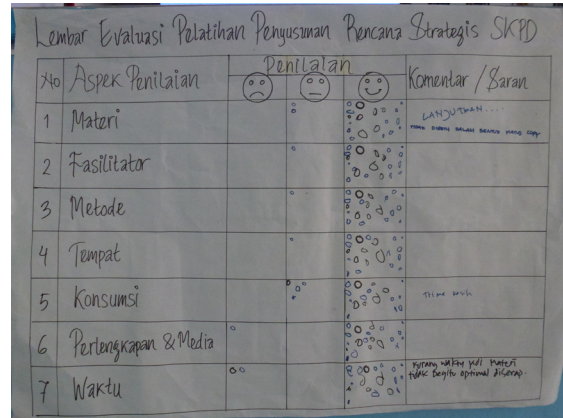 Lembar Evaluasi Pelatihan Penyusunan Rencana Strategis SKPD
No Aspek Penilaian Penilaian Komentar / Saran
1 Materi LANJUTKAN....
dalam bentuk hard copy
2 Fasilitator
3 Metode
4 Tempat
5 Konsumsi
6 Perlengkapan & Media
7 Waktu Kurang waktu jadi materi
tidak begitu optimal diserap.